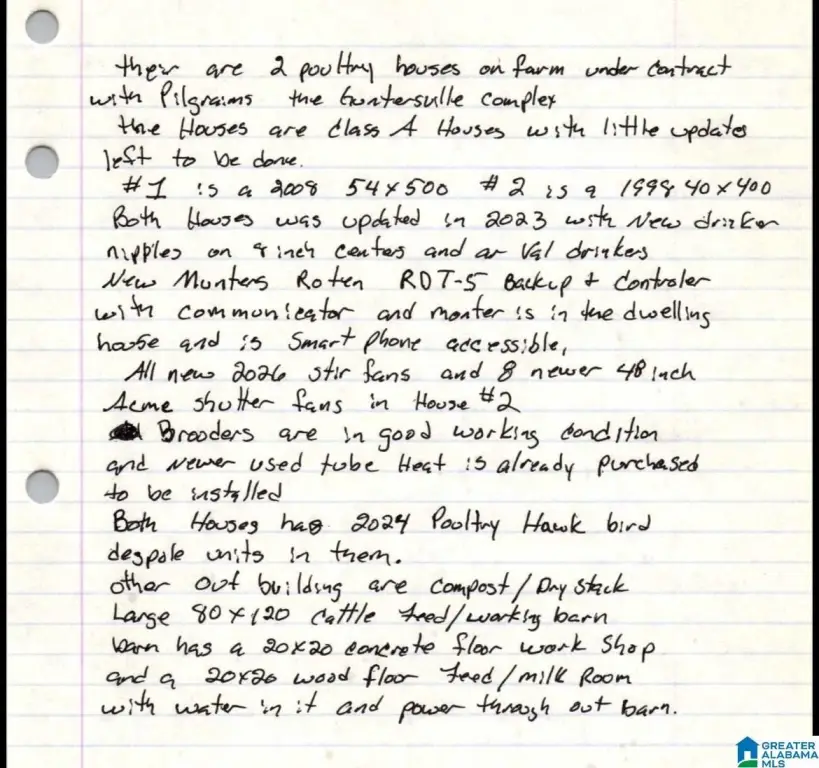 their are 2 poultry houses on farm under contract
with Pilgraims the Guntersville Complex
the Houses are Class A Houses with little updates
left to be done.
#1 is a 2008 54x500 #2 is a 1998 40x400
Both Houses was updated in 2023 with New drinker
nipples on 8 inch centers and ar Val drinkers
New Munters Roten RDT-5 Backup & Controler
with communicator and monter is in the dwelling
house and is Smart Phone accessible,
All new 2026 stir fans and 8 newer 48 inch
Acme shutter fans in House #2
Brooders are in good working condition
and Newer used tube Heat is already purchased
to be installed
Both Houses has 2024 Poultry Hawk bird
despole units in them.
other out building are compost/Dry Stack
Large 80x120 Cattle feed/working barn
barn has a 20x20 concrete floor work Shop
and a 20x20 wood floor feed/milk Room
with water in it and power through out barn.
GREATER
ALABAMA
MLS